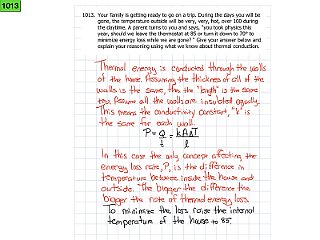 1013
1013. Your family is getting ready to go on a trip. During the days you will be
gone, the temperature outside will be very, very, hot, over 100 during
the daytime. A parent turns to you and says, "you took physics this
year, should we leave the thermostat at 85 or turn it down to 70° to
minimize energy loss while we are gone?" Give your answer below and
explain your reasoning using what we know about thermal conduction.
Thermal energy is conducted through the walls
of the house. Assuming the thickness of all of the
walls is the same, thus the "length" is the same
Assume all the walls are insulated equally.
This means the conductivity constant, "k" is
the same for each wall.
P = Q/t = kAΔT/l
In this case the only concept affecting the
energy loss rate, P, is the difference in
temperature between inside the house and
outside. The bigger the difference the
bigger the rate of thermal energy loss.
To minimize the loss raise the internal
temperature of the house to 85°.